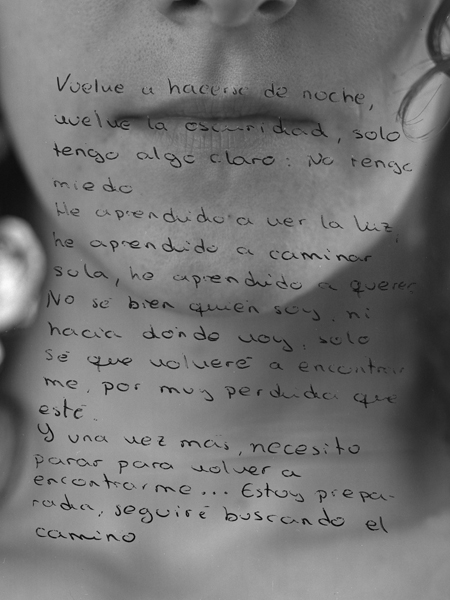 Vuelve a hacerse de noche,
vuelve la oscuridad, solo
tengo algo claro: No tengo
miedo
He aprendido a ver la luz,
he aprendido a caminar
sola, he aprendido a querer
No sé bien quien soy, ni
hacia dónde voy, solo
sé que volveré a encontrar
me, por muy perdida que
esté.
Y una vez más, necesito
parar para volver a
encontrarme... Estoy prepa-
rada, seguiré buscando el
camino